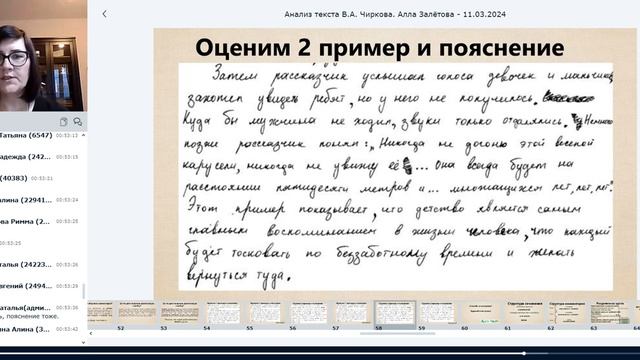 Анализ текста В.А. Чиркова. Алла Залётова - 11.03.2024
Оценим 2 пример и пояснение
Затем рассказчик услышал голоса девочек и мальчиков,
захотел увидеть ребят, но у него не получилось.
Куда бы мужчина не ходил, звуки только отдалялись. Немного
позже рассказчик понял: „Никогда не догоню этой веселой
карусели, никогда не увижу её ... она всегда будет на
расстоянии пятидесяти метров и ... множащихся лет, лет, лет".
Этот пример показывает, что детство является самым
главным воспоминанием в жизни человека, что каждый
будет тосковать по беззаботному времени и желать
вернуться туда.
Татьяна (6547) 00:53:13
(242...
(40383) 00:53:21
(22941... 00:53:24
ва Римма (2... 00:53:25
00:53:25
талья (24223... 00:53:26
вгений (2494... 00:53:29
аталья(адми... 00:53:36
ь, пояснение тоже.
на Алина (3... 00:53:42
52 53 54 55 56 57 58 59 60 61 62 63 64